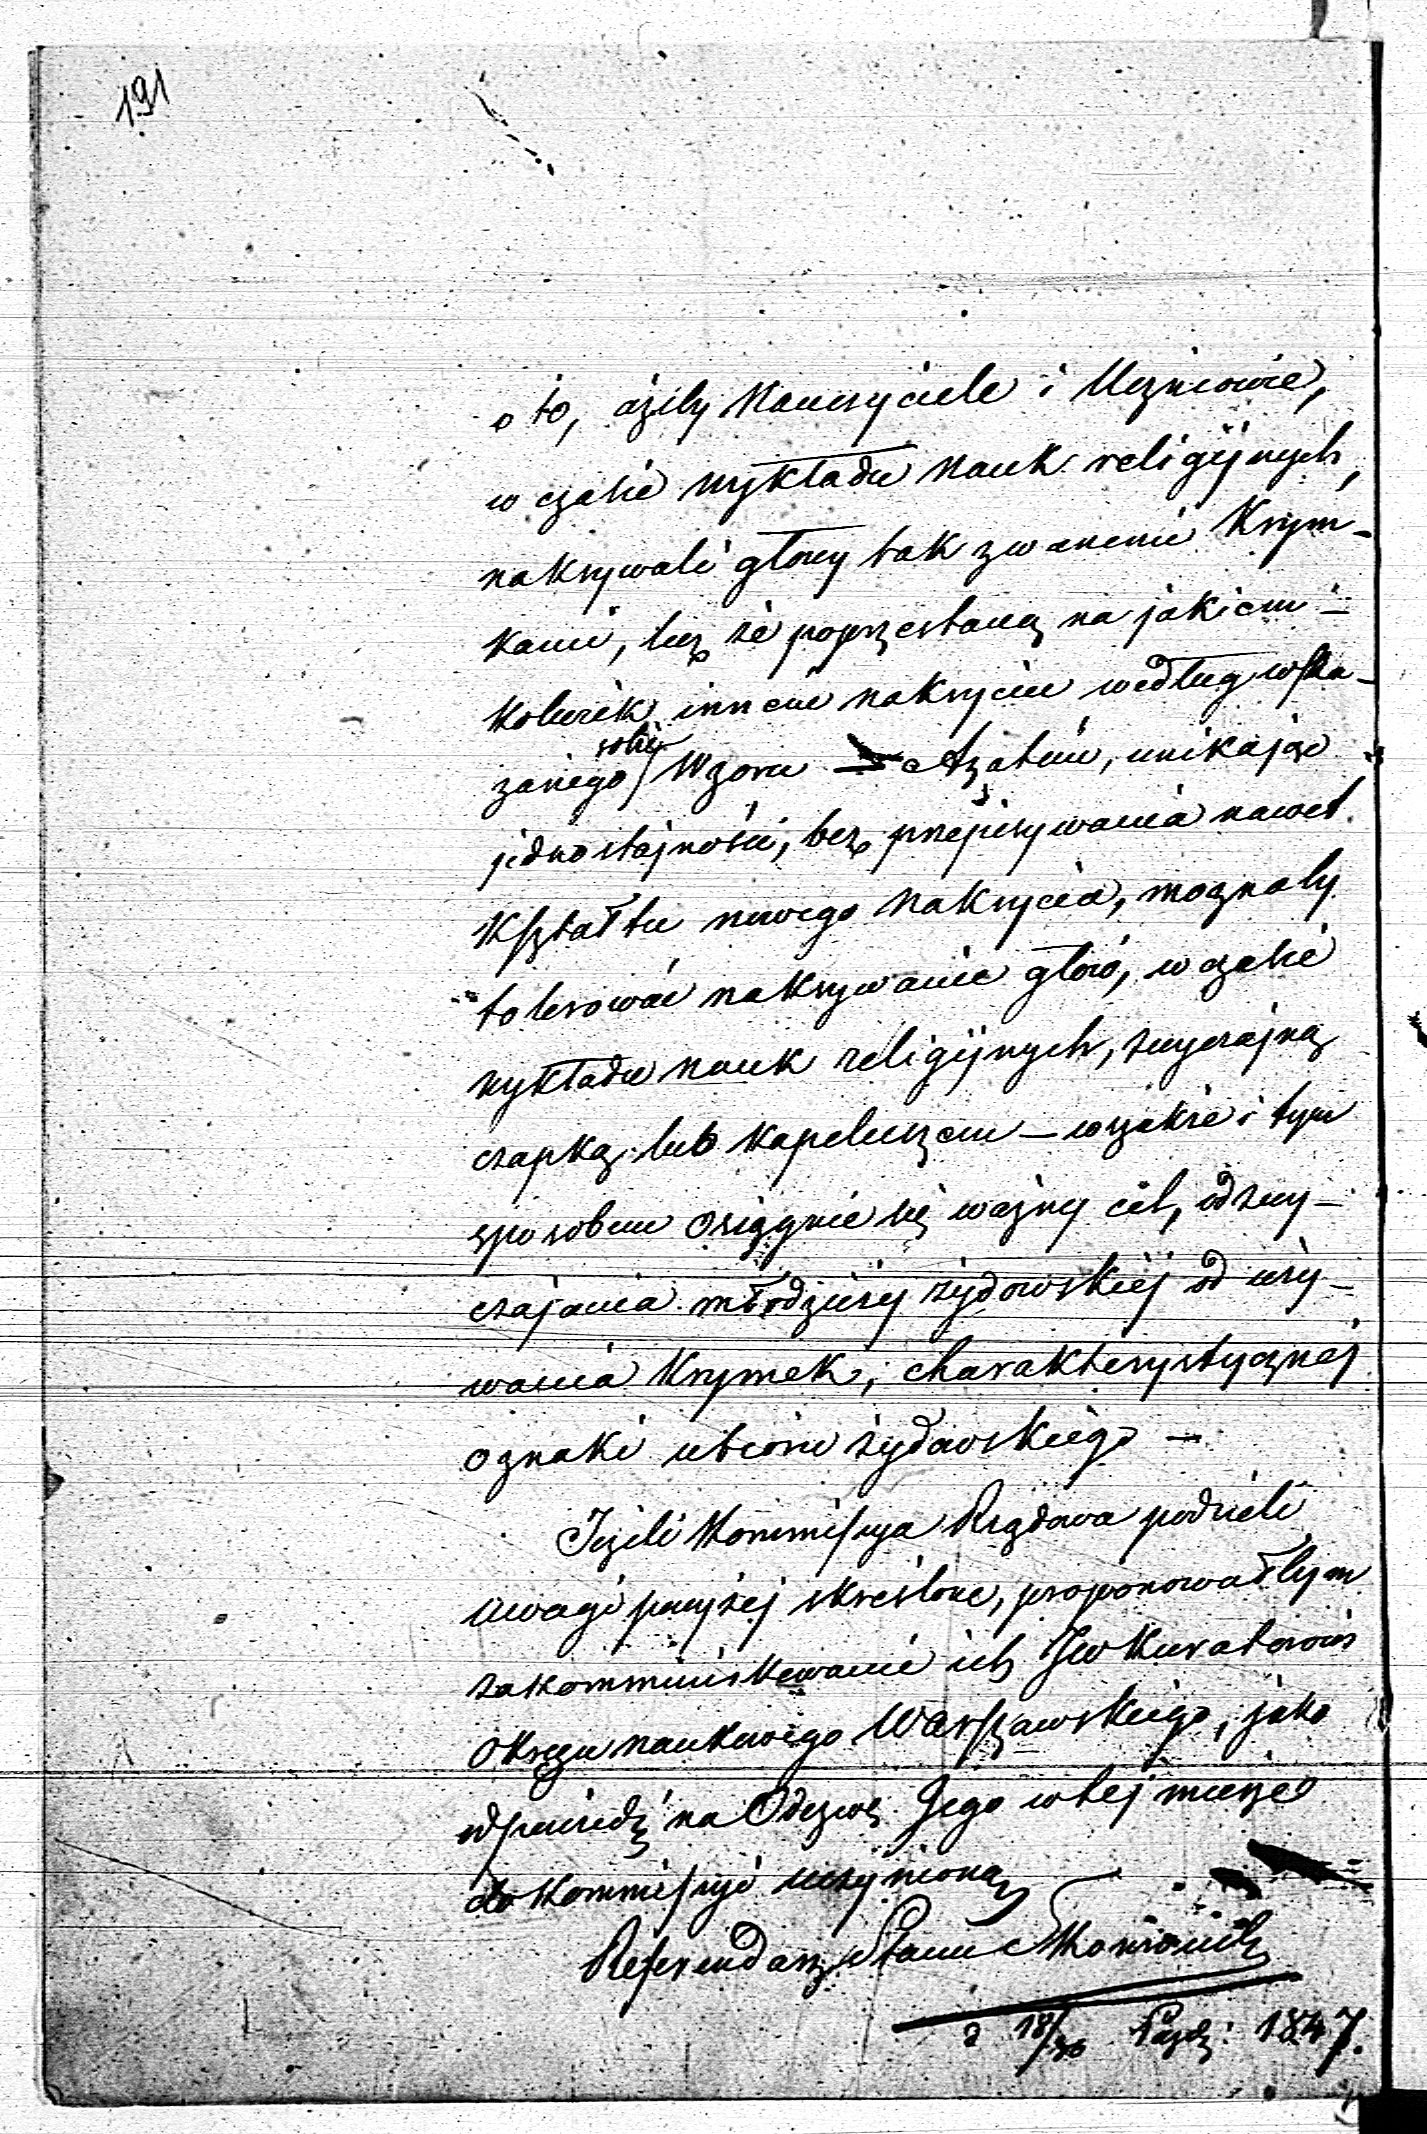 191
o to, ażeby Nauczyciele i Uczniowie,
w czasie wykładu nauk religijnych,
nakrywali głowy tak zwanemi Krym-
kami, lecz że poprzestaną na jakiem-
kolwiek innem nakryciu według wska-
zanego sobie Wzoru unikając
jednostajności, bez przepisywania nawet
Kształtu nowego nakrycia, możnaby
tolerować nakrywanie głów, w czasie
wykładu nauk religijnych, zwyczajną
czapką lub kapeluszem – wszakże i tym
sposobem osiągnie się ważny cel, odzwy-
czajania młodzieży żydowskiej od uży-
wania Krymek, charakterystycznej
oznaki ubioru żydowskiego –
Jeżeli Kommissya Rządowa podzieli
uwagi powyżej skreślone, proponowałbym
zakommunikowanie ich JW Kuratorowi
Okręgu naukowego Warszawskiego, jako
odpowiedź na Odezwę Jego w tej mierze
do Kommissyi uczynioną
Referendarz Stanu
d 18/30 Paźdz: 1847.